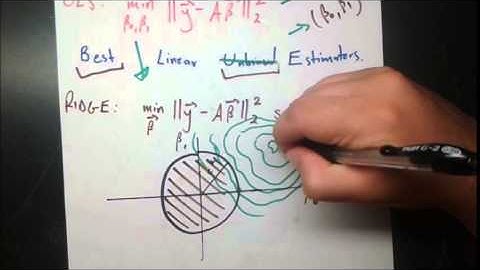 OLS: min ‖y⃗ - Aβ⃗‖₂²
β₀,β₁
(β₀,β₁)
Best Linear Unbiased Estimators.
RIDGE: min ‖y⃗ - Aβ⃗‖₂² s
β⃗
β₁